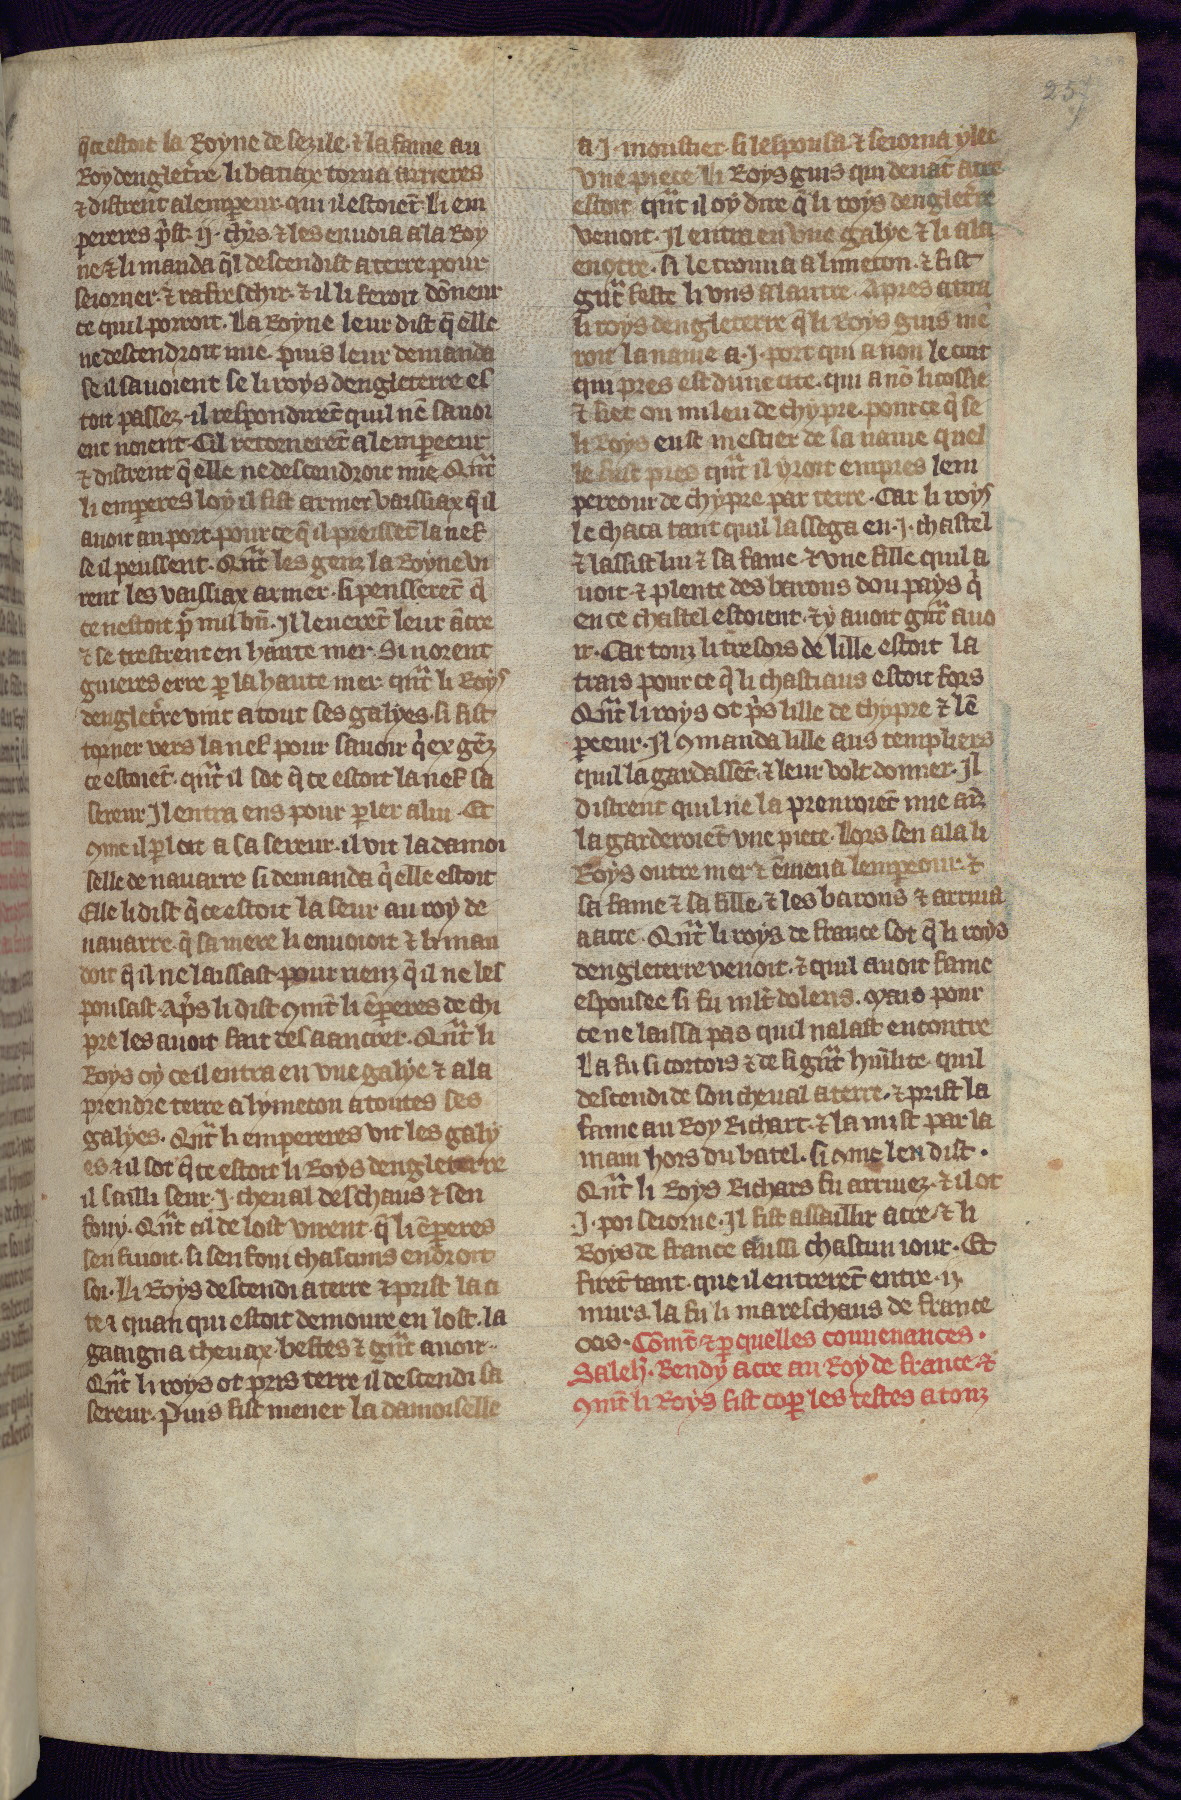 257
q̄ ce estoit la Royne de sezile. ⁊ la fame au
Roy dengletr̄e. li batiax torna arrieres
⁊ distrent a lemp̄eur. qui il estoiēt. Li em
pereres p̄st .ij. ch̄rs. ⁊ les enuoia a la Roy
ne ⁊ li manda q̄l descendist a terre pour
seiorner. ⁊ rafreschir. ⁊ il li feroit dōneur
ce quil porroit. La Royne leur dist q̄ elle
ne descendroit mie. puis leur demanda
se il sauoient se li roys dengleterre es
toit passez. il respondirēt quil nē sauoi
ent noient. Cil retornerēt a lemp̄eeur
⁊ distrent q̄ elle ne descendroit mie. Qūt
li emperes loy il fist armer vaissiax q̄ il
auoit au port. pour ce q̄ il preissēt la nef
se il peussent. Qūt les genz la Royne vi
rent les vaissiax armer. si pensserēt q̄
ce nestoit p̄ nul bn̄. Il leuerēt leur ācre
⁊ se trestrent en haute mer. Si norent
guieres erre p̄ la haute mer. qūt li Roys
dengletr̄e vint a tout ses galyes. si fist
torner vers la nef pour sauoir q̄ex gēz
ce estoiēt. qūt il sot q̄ ce estoit la nef sa
sereur Il entra ens pour p̄ler a lui. Et
9me il p̄loit a sa sereur. il vit la damoi
selle de nauarre si demanda q̄ elle estoit
Elle li dist q̄ ce estoit la seur au roy de
nauarre. q̄ sa mere li enuoioit ⁊ li man
doit q̄ il ne laissast pour rienz q̄ il ne les
pousast. Ap̄s li dist 9mt̄ li ēperes de chi
pre les auoit fait desaancrer. Qūt li
Roys oy ce il entra en vne galye ⁊ ala
prendre terre a lymeton a toutes ses
galyes. Qūt li empereres vit les galy
es. ⁊ il sot q̄ ce estoit li Roys dengleterre
il sailli seur .J. cheual deschaus ⁊ sen
fouy. Qūt cil de lost virent. q̄ li ēperes
sen fuioit. si sen foui chascuns endroit
soi. Li Roys descendi a terre ⁊ prist la ci
te ⁊ quan qui estoit demoure en lost. la
gaaigna cheuax. bestes ⁊ gūt auoir.
Qūt li roys ot pris terre il descendi sa
sereur. Puis fist mener la damoiselle
a .J. moustier. si lespousa. ⁊ seiorna ylec
vne piece. li Roys guis qui deuāt acre
estoit. qūt il oy dire q̄ li roys dengletr̄e
venoit. Il entra en vne galye ⁊ li ala
en9tre. si le trouua a limeton. ⁊ fist
gūt feste li vns a lautre. Apres atira
li roys dengleterre q̄ li Roys guis mē
roit la nauie a .J. port qui a non le coit
qui pres est dune cite. qui a nō licossie
⁊ siet on mileu de chypre. pour ce q̄ se
li Roys eust mestier de sa nauie quel
le fust pres qūt il yroit empres lem
pereour de chypre par terre. Car li roys
le chaca tant quil lassega en .J. chastel
⁊ lassist lui ⁊ sa fame. ⁊ vne fille quil a
uoit. ⁊ plente des barons dou pays q̄
en ce chastel estoient. ⁊ y auoit gūt auo
ir. Car touz li tresors de lille estoit la
trais pour ce q̄ li chastiaus estoit fors
Qūt li roys ot p̄s lille de chypre ⁊ lē
p̄eeur. Il 9manda lille aus templiers
quil la gardassēt. ⁊ leur volt donner. Il
distrent quil ne la prenroiēt mie
la garderoiēt vne piece. Lors sen ala li
Roys outre mer ⁊ ēmena lempeour. ⁊
sa fame ⁊ sa fille. ⁊ les barons ⁊ arriua
a acre. Qūt li roys de france sot q̄ li roys
dengleterre venoit. ⁊ quil auoit fame
espousee si fu ml̄t dolens. Mais pour
ce ne laissa pas quil nalast encontre
La fu si cortois ⁊ de si gūt hūilite. quil
descendi de son cheual a terre. ⁊ prist la
fame au Roy Richart. ⁊ la mist par la
main hors du batel. si 9me len dist.
Qūt li Roys Richars fu arriuez. ⁊ il ot
.J. poi seiorne. Il fist assaillir acre. ⁊ li
Roys de france aussi chascun iour. Et
firēt tant. que il entrerēt entre .ij.
murs. la fu li mareschaus de france
ocis. Cōmt̄ ⁊ p̄ quelles couuenances.
Saleh̄. Rendy acre au Roy de france. ⁊
9mt̄ li Roys fist cop̄ les testes a touz